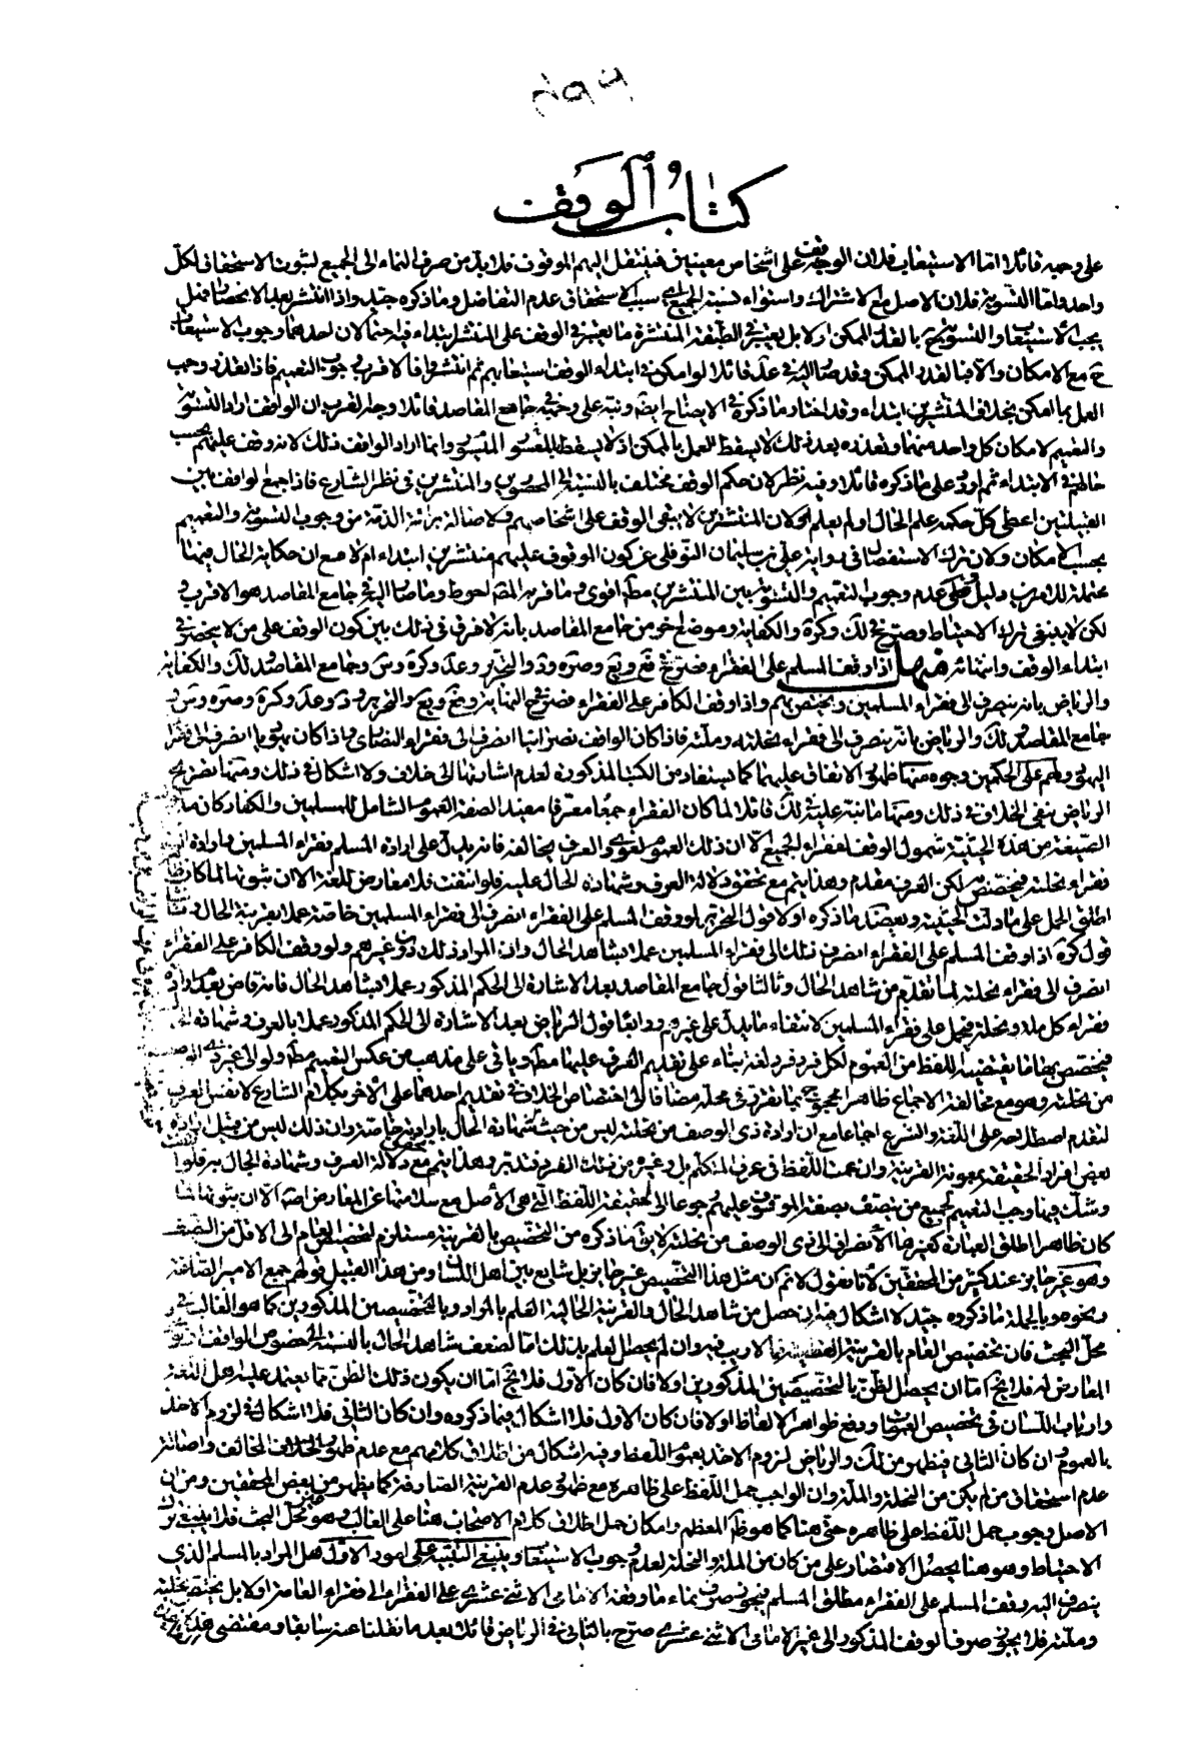 كتاب الوقف
على وجه قائلا اما الاستيعاب فلان الوقف على اشخاص معينين فينتقل اليهم الموقوف فلا بد من صرف النماء الى الجميع لثبوت الاستحقاق لكل
واحد واما التسوية فلان الاصل مع الاشتراك واستواء نسبة الجميع الى سبب الاستحقاق عدم التفاضل وما ذكره جيد واذا انتشر بعد الانحصار فهل
يجب الاستيعاب والتسوية ح بالقدر الممكن او لا بل يعتبر في الطبقة المنتشرة ما يعتبر في الوقف على المنتشر ابتداء فيه احتمالان احدهما وجوب الاستيعاب
ح مع الامكان والا فبالقدر الممكن وقد صار اليه في عد قائلا لو امكن في ابتداء الوقف استيعابهم ثم انتشروا فالاقرب وجوب التعميم فاذا تعذر وجب
العمل بما امكن بخلاف المنتشرين ابتداء وقد اختار ما ذكره في الايضاح ايضا ونبه على وجهه في جامع المقاصد قائلا وجه القرب ان الواقف اراد التسوية
والتعميم لامكان كل واحد منهما وتعذره بعد ذلك لا يسقط العمل بالممكن اذ لا يسقط الميسور بالمعسور وانما اراد الواقف ذلك لانه وقف عليهم بحسب
حالهم في الابتداء ثم اورد على ما ذكره قائلا وفيه نظر لان حكم الوقف مختلف بالنسبة الى المحصورين والمنتشرين في نظر الشارع فاذا جمع الواقف بين
القبيلتين اعطى كل حكمه علم الحال او لم يعلم ولان المنتشرين لا يبقى الوقف على اشخاصهم ولاصالة برائة الذمة من وجوب التسوية والتعميم
بحسب الامكان ولان ترك الاستفصال في رواية علي بن سليمان النوفلي عن كون الموقوف عليهم منتشرين ابتداء ام لا مع ان حكاية الحال فيهما
محتملة للامرين دليل على عدم وجوب التعميم والتسوية بين المنتشرين مط اقوى وما قربه المص احوط وما صار اليه في جامع المقاصد هو الاقرب
لكن لا ينبغي ترك الاحتياط وصرح في لك وكرة والكفاية وموضع اخر من جامع المقاصد بانه لا فرق في ذلك بين كون الوقف على من لا ينحصر في
ابتداء الوقف واثنائه منهل اذا وقف المسلم على الفقراء فصرح في فع ويع وصره ود والتحرير وعد وكرة وس وجامع المقاصد ولك والكفاية
والرياض بانه ينصرف الى فقراء المسلمين ويختص بهم واذا وقف الكافر على الفقراء فصرح في النهاية وفع ويع والتحرير ود وعد وكرة وصره وس و
جامع المقاصد ولك والرياض بانه ينصرف الى فقراء نحلته وملته فاذا كان الواقف نصرانيا انصرف الى فقراء النصارى واذا كان يهوديا انصرف الى فقراء
اليهود ولهم على الحكمين وجوه منها ظهور الاتفاق عليهما كما يستفاد من الكتب المذكورة لعدم اشارتها الى خلاف ولا اشكال في ذلك ومنها تصريح
الرياض بنفي الخلاف في ذلك ومنها ما نبه عليه في لك قائلا لما كان الفقراء جمعا معرفا مفيدا لصفة العموم الشامل للمسلمين والكفار كان
الصيغة من هذه الحيثية شمول الوقف لفقراء الجميع الا ان ذلك العموم لغوي والعرف يخالفه فانه يدل على ارادة المسلم فقراء المسلمين وارادة
فقراء نحلته فيختص لكن العرف مقدم وهذا يتم مع تحقق دلالة العرف وشهادة الحال عليه فلو انتفت فلا معارض للغة الا ان ثبوتها لما كان
اطلق الحمل على ما دلت الحيثية ويعضد ما ذكره اولا قول التحرير لو وقف المسلم على الفقراء انصرف الى فقراء المسلمين خاصة عملا بقرينة الحال
قول كرة اذا وقف المسلم على الفقراء انصرف ذلك الى فقراء المسلمين عملا بشاهد الحال وان المراد ذلك دون غيرهم ولو وقف الكافر على الفقراء
انصرف الى فقراء نحلته لما تقدم من شاهد الحال وثالثا قول جامع المقاصد بعد الاشارة الى الحكم المذكور عملا بشاهد الحال فانه قاض بعدم ارادة
فقراء كل ملة ونحلة فيحمل على فقراء المسلمين لانتفاء ما يدل على غيرهم ورابعا قول الرياض بعد الاشارة الى الحكم المذكور عملا بالعرف وشهادة
فيختص بهما ما يقتضيه اللفظ من العموم لكل فرد فرد لغة بناء على تقديم العرف عليها مط وياتي على مذهب من عكس التعميم مط ولو الى غير
من نحلته وهو مع مخالفة الاجماع ظاهرا محجوج بما تقرر في محله مضافا الى اختصاص الخلاف في تقديم احدهما على الاخر بكلام الشارع لا نفس العرب
لتقدم اصطلاحه على اللغة والشرع اجماعا مع ان ارادة ذي الوصف من نحلته ليس من حيث شهادة الحال بارادته خاصة وان ذلك ليس من قبيل ارادة
بعض افراد الحقيقة بمعونة القرينة وان عمت اللفظ في عرف المتكلم بل وغيره من ذلك الفرد فتدبر وهذا يتم مع دلالة العرف وشهادة الحال به فلو
وشك فيهما وجب التعميم لجميع من يتصف بصفة الموقوف عليهم رجوعا الى الحقيقة اللفظ التي هي الاصل مع سلامتها عن المعارض اصلا الا ان ثبوتها لما
كان ظاهرا اطلق العبارة كغيرها الانصراف الى ذي الوصف من نحلته لا يق ما ذكره من التخصيص بالقرينة مستلزم لتخصيص العام الى الاقل من النصف
وهو غير جايز عند كثير من المحققين لانا نقول لا نم ان مثل هذا التخصيص غير جايز بل شايع بين اهل اللسان ومن هذا القبيل قولهم جمع الامير الصاغة
ونحوه وبالجملة ما ذكروه جيد لا اشكال فيه ان حصل من شاهد الحال والقرينة الحالية العلم بالمراد وبالتخصيصين المذكورين كما هو الغالب في
محل البحث فان تخصيص العام بالقرينة القطعية مما لا ريب فيه وان لم يحصل العلم بذلك اما لضعف شاهد الحال بالنسبة الى خصوص الواقف او
المعارض له فلا يخ اما ان يحصل الظن بالتخصيصين المذكورين او لا فان كان الاول فلا يخ اما ان يكون ذلك الظن مما يعتمد عليه اهل اللغة
وارباب اللسان في تخصيص العمومات ودفع ظواهر الالفاظ او لا فان كان الاول فلا اشكال فيما ذكروه وان كان الثاني فلا اشكال في لزوم الاخذ
بالعموم وان كان الثاني فيظهر من لك والرياض لزوم الاخذ بعموم اللفظ وفيه اشكال من اطلاق كلامهم مع عدم ظهور الخلاف المخالف واصالة
عدم استحقاق من لم يكن من النحلة والملة وان الواجب حمل اللفظ على ظاهره مع ظهور عدم القرينة الصارفة كما يظهر من بعض المحققين ومن ان
الاصل وجوب حمل اللفظ على ظاهره حتى هنا كما هو ظم المعظم وامكان حمل اطلاق كلام الاصحاب هنا على الغالب وهو غير محل البحث فلا ينبغي ترك
الاحتياط وهو هنا يحصل الاقتصار على من كان من الملة والنحلة لعدم وجوب الاستيعاب وينبغي التنبيه على امور الاول هل المراد بالمسلم الذي
ينصرف اليه وقف المسلم على الفقراء مطلق المسلم فيجوز صرف نماء ما وقفه الامامي الاثنى عشري على الفقراء الى فقراء العامة او لا بل يختص بنحلته
وملته فلا يجوز صرف الوقف المذكور الى غير الامامي الاثنى عشري صرح بالثاني في الرياض قائلا بعد ما نقلنا عنه سابقا ومقتضى هذ